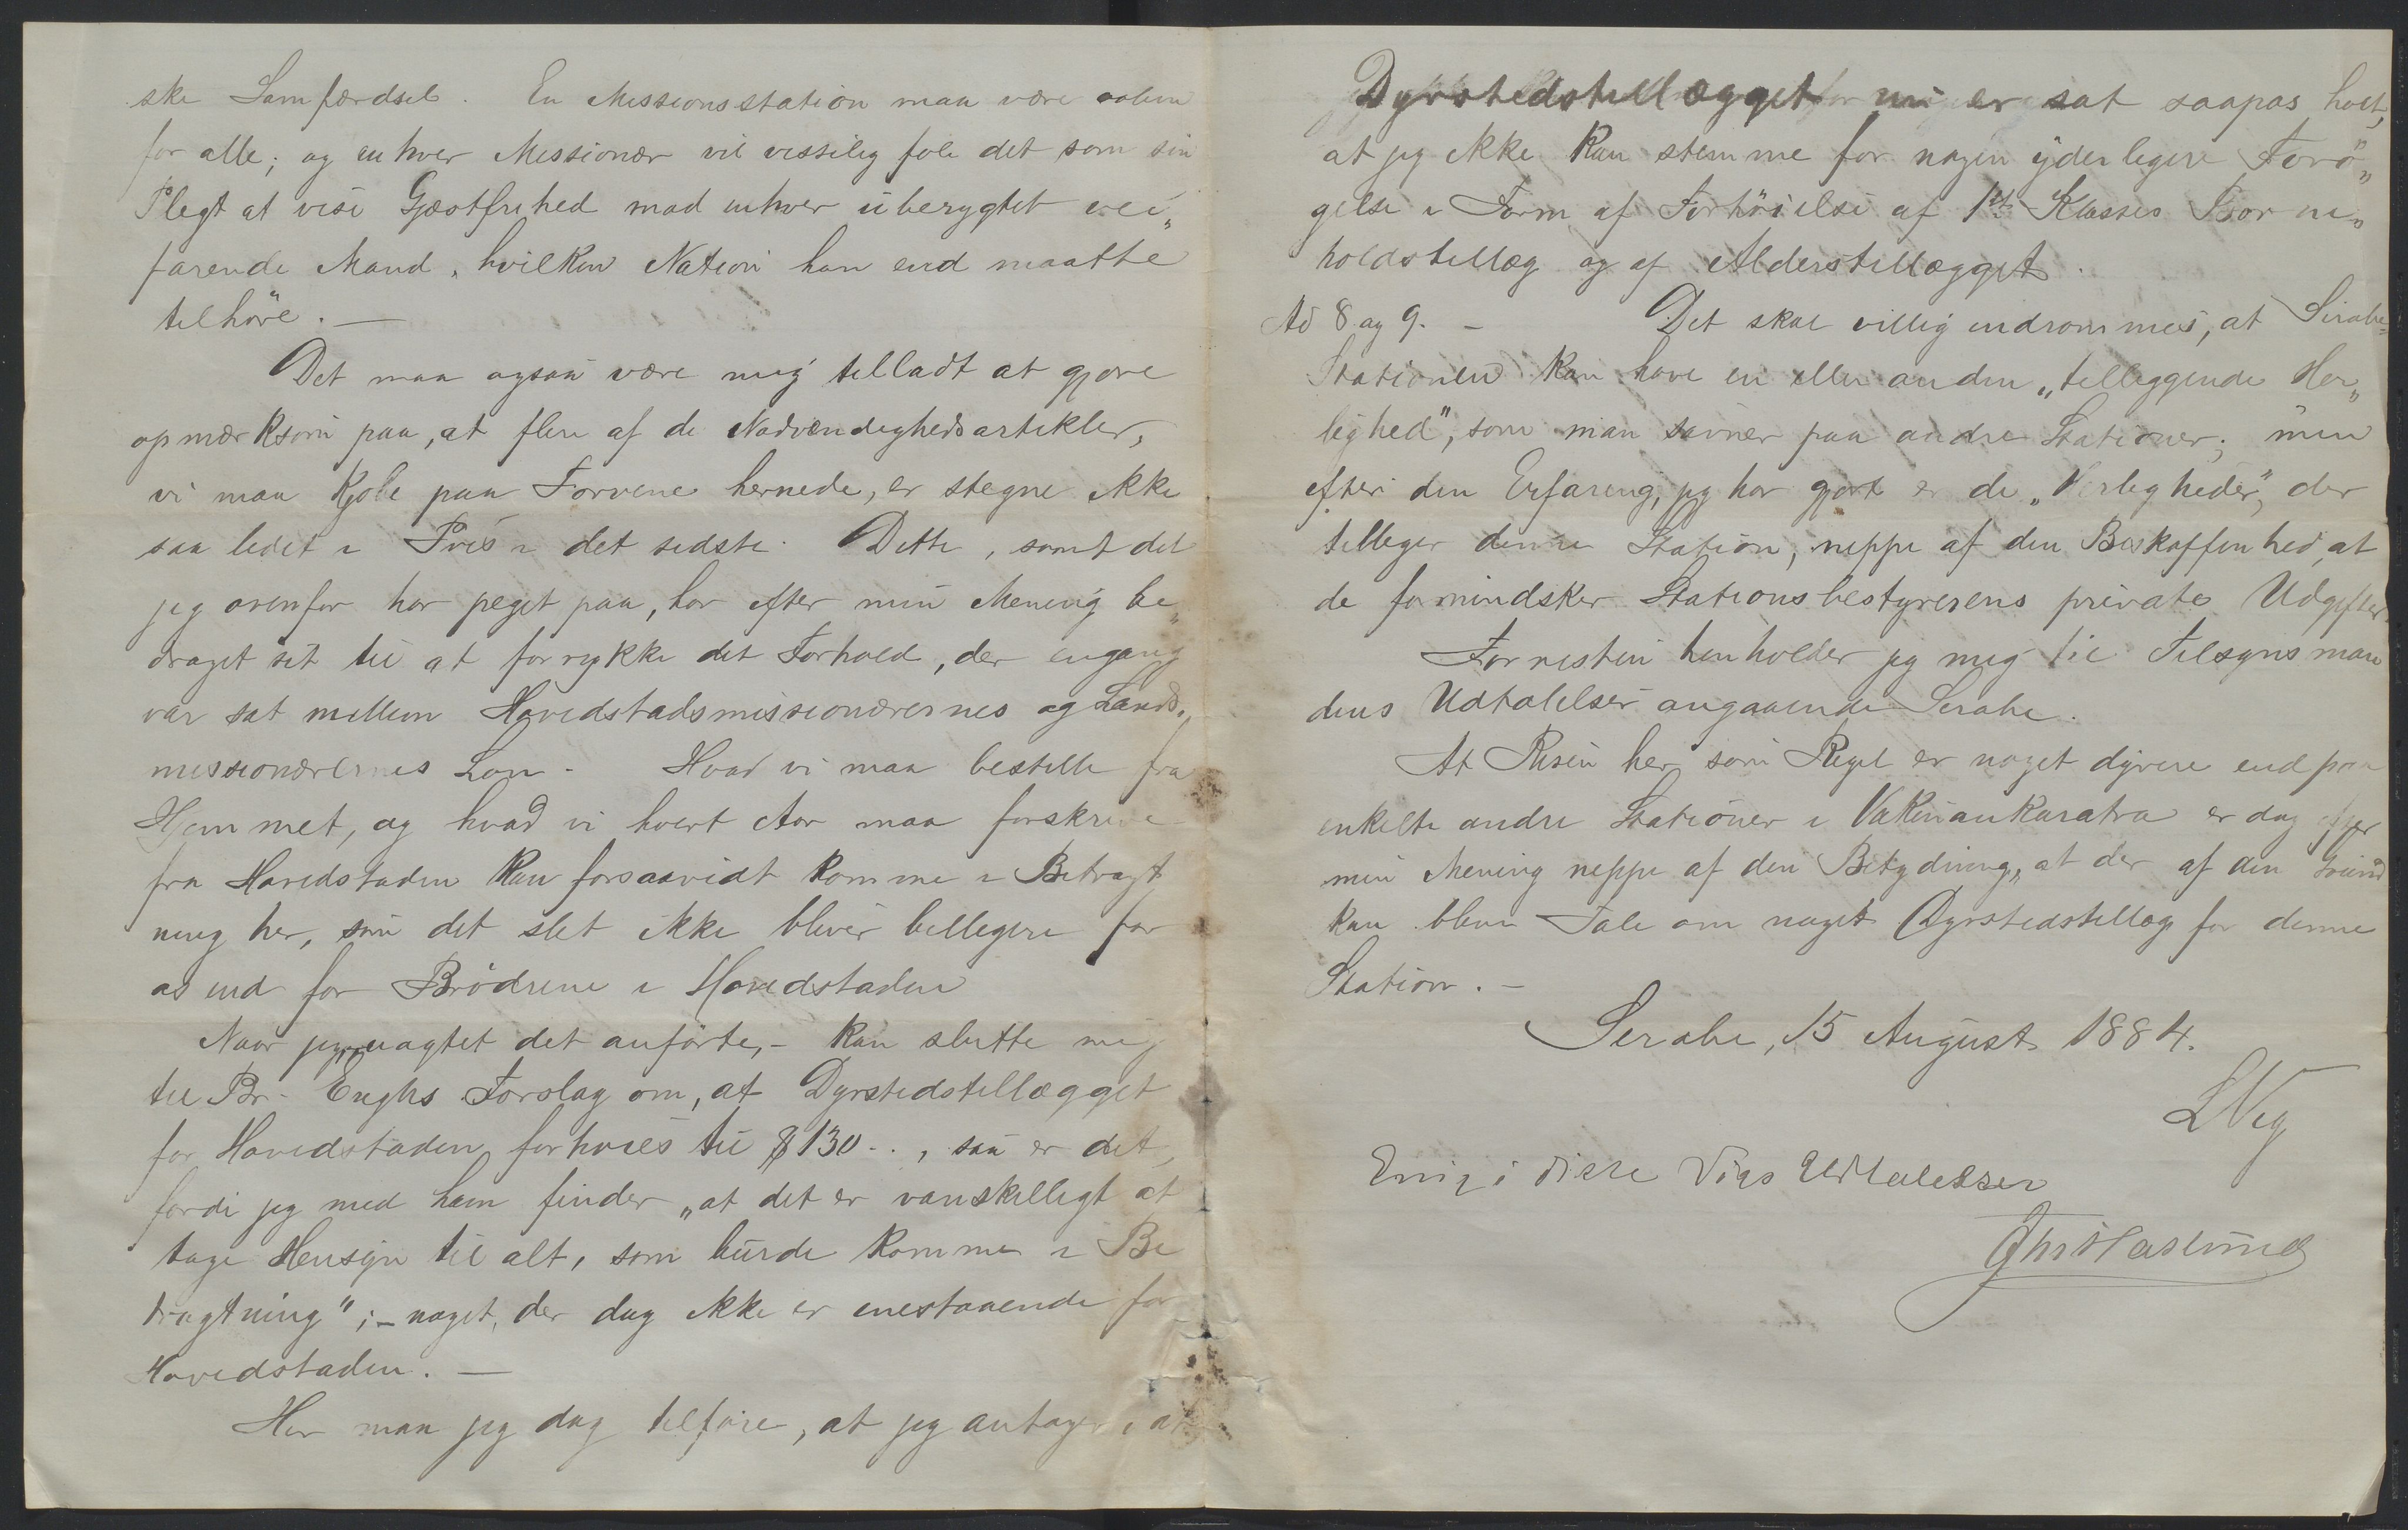 ske Samfærdsel. En Missionsstation maa være aaben
for alle; og enhver Missionær vil visselig føle det som sin
Pligt at vise Gjæstfrihed mod enhver uberygtet vei„
farende Mand, hvilken Nation han end maatte
tilhöre. —
Det maa ogsaa være mig tilladt at gjøre
opmærksom paa, at flere af de Nødvendighedsartikler,
vi maa kjøbe paa Torvene hernede, er stegne ikke
saa lidet i Pris i det sidste. Dette, samt det
jeg ovenfor har peget paa, har efter min Mening be„
draget sit til at forrykke det Forhold, der engang
var sat mellem Hovedstadsmissionærernes og Lands„
missionærernes Løn. - Hvad vi maa bestille fra
Hjemmet, og hvad vi hvert Aar maa forskrive
fra Hovedstaden kan forsaavidt komme i Betragt
ning her, som det slet ikke bliver billigere for
os end for Brödrene i Hovedstaden
Naar jeg, uagtet det anförte, - kan slutte mig
til Br. Enghs Forslag om, at Dyrstedstillægget
for Hovedstaden forhøies til $ 130.., saa er det,
fordi jeg med ham finder „at det er vanskelligt at
tage Hensyn til alt, som burde komme i Be
tragtning"; - noget, der dog ikke er enestaaende for
Hovedstaden. —
Her maa jeg dog tilføie, at jeg antager, at
Dyrstedstillægget er sat saapas høit,
at jeg ikke kan stemme for nogen yderligere Forö„
gelse i Form af Forhöielse af 1ste Klasses Barne„
holdstillæg og af Alderstillægget.
Ad 8 og 9. - Det skal villig indrømmes, at Sirabe-
Stationen kan have en eller anden „tilliggende Her„
lighed", som man savner paa andre Stationer; men
efter den Erfaring, jeg har gjort er de „Herligheder", der
tilligger denne Station, neppe af den Beskaffenhed, at
de formindsker Stationsbestyrerens private Udgifter.
Forresten henholder jeg mig til Tilsynsman
dens Udtalelser angaaende Sirabe.
At Risen her som Regel er noget dyrere end paa
enkelte andre Stationer i Vakinankaratra er dog efter
min Mening neppe af den Betydning, at der af den Grund
kan blive Tale om noget Dyrstedstillæg for denne
Station. -
Sirabe, 15 August 1884.
LVig
Enig i disse Vigs Udtalelser
Chr Haslund